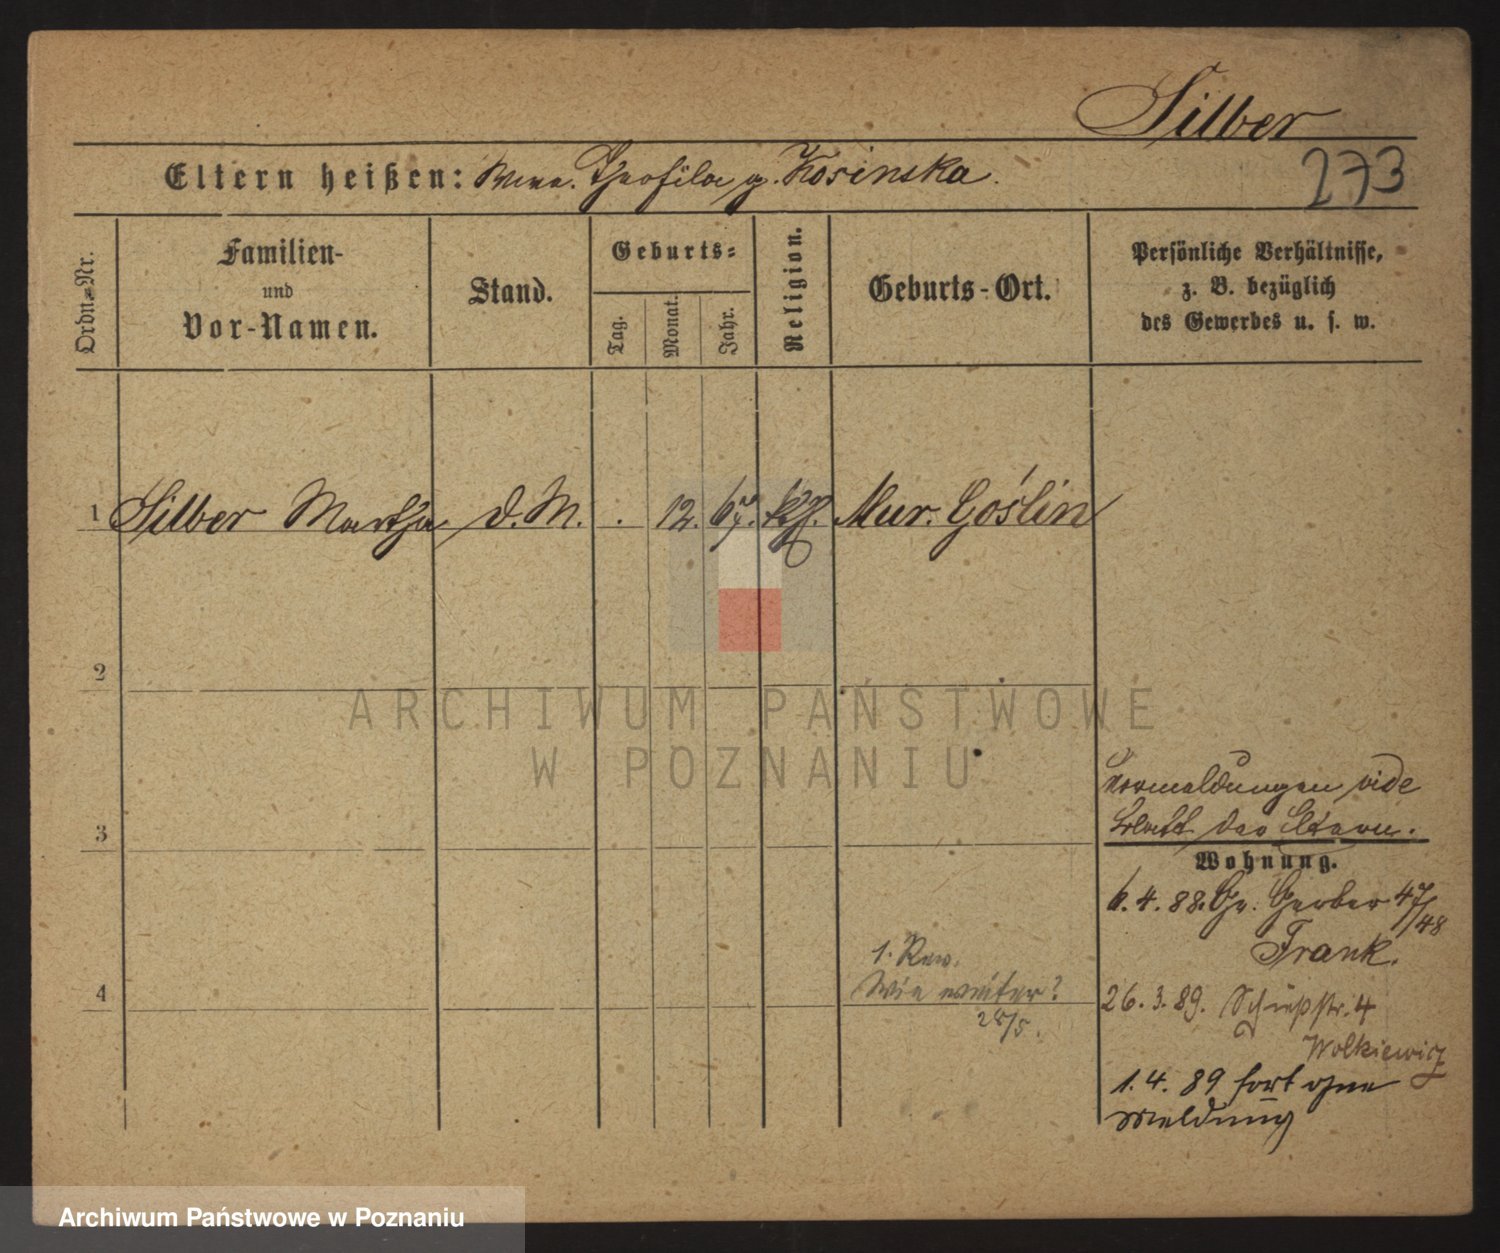 Silber
Eltern heißen: Wwe. Theofila g. Kosinska.
273
Ordn.-Nr.
Familien-
und
Vor-Namen.
Stand.
Geburts-
Tag.
Monat.
Jahr.
Religion.
Geburts-Ort.
Persönliche Verhältnisse,
z. B. bezüglich
des Gewerbes u. s. w.
1 Silber Martha D.M. . 12. 67. kth. Mur. Goślin
2
3
4
Vormeldungen vide
Blatt der Eltern.
Wohnung.
6.4.88. Gr. Gerber 47/48
Frank.
1. Rev.
Wie weiter?
28/5.
26.3.89. Schießstr. 4
Wolkiewicz
1.4.89 fort ohne
Meldung
ARCHIWUM PAŃSTWOWE
W POZNANIU
Archiwum Państwowe w Poznaniu